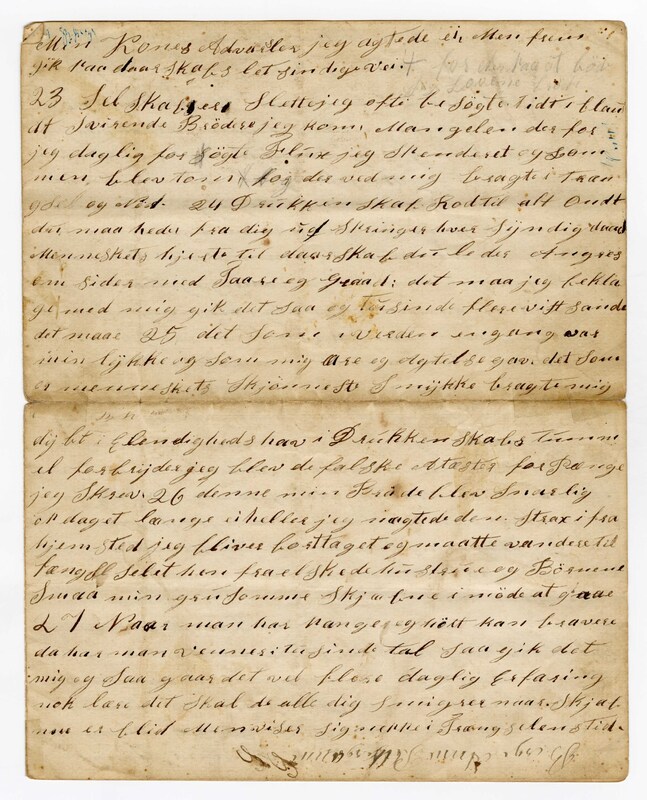 Min Kones Advarsler jeg agtede ei Men frem
gik paa daarskabs letsindige vei.
23 Selskaber Slette jeg ofte besögte tidt i blan
dt Svirende Brödere jeg kom, Mangelen derfor
jeg daglig forögte Flux jeg Skenderet og Som
men blev tom for derved mig bragte i Træn
gsel og Nöd. 24 Drukkenskab Rod til alt Ondt
du maa hede fra dig ud Skringer hver Syndig daad
Menneskets hjerte til daarskab du leder Angres
om sider med Taare og Graad: det maa jeg bekla
ge med mig gik det saa og tusinde flere vist sande
det maae 25 det Som i verden engang var
min lykke og Som mig ære og agtelse gav det Som
er menneskets Skjönneste Smykke bragte mig
dybt i Elendigheds hav i Drukkenskabs tumm
el forbryder jeg blev de falske Atæster for Pænge
jeg Skrev 26 denne min Brøde blev Snarlig
opdaget længe ei heller jeg nægtede den. Strax i fra
hjemsted jeg bliver borttaget og maatte vandere til
Fængsel hen fra elskede hustrue og Börnene
Smaa min grusomme Skjæbne i möde at gaae
27 Naar man har Pange og höit kan bravere
da har man venner i tusinde tal Saa gik det
mig og Saa gaar det vel flere daglig Erfaring
nok lære det Skal de alle dig Smigrer naar Skjæb
nen er blid Men viser Sig nekke i Trængselens tid.